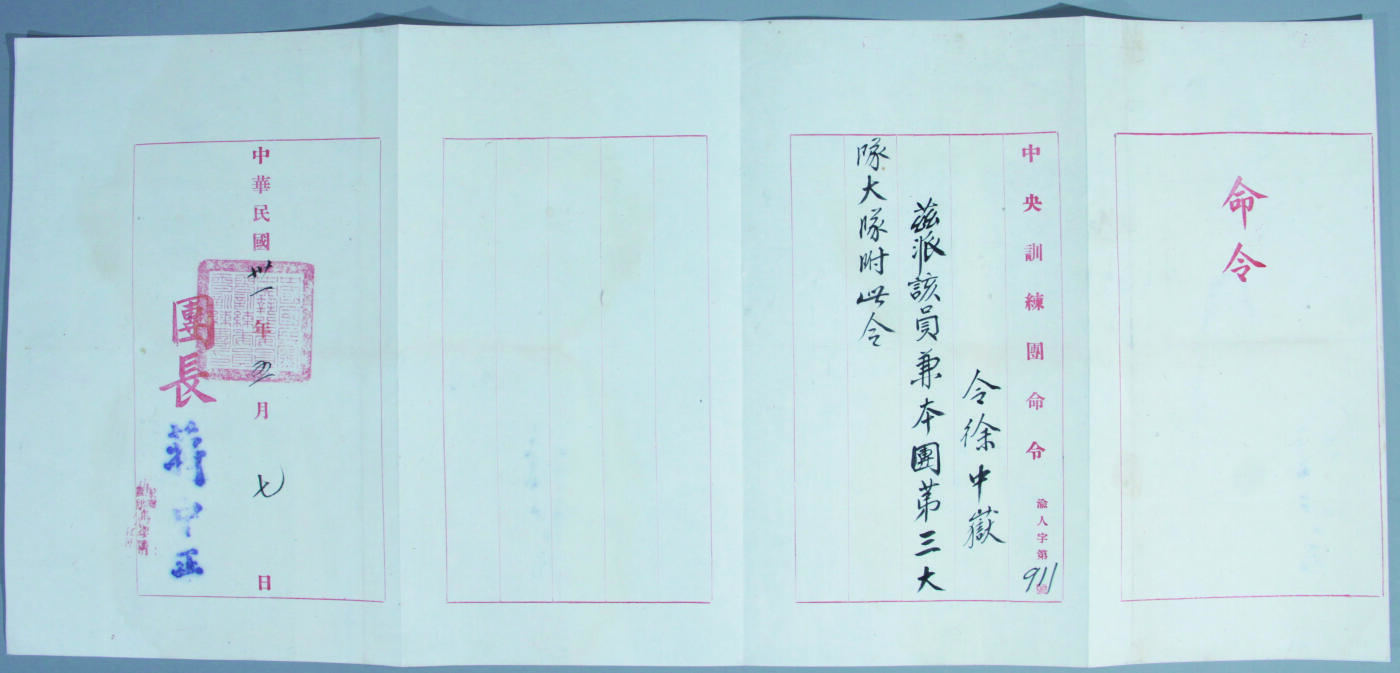 命令
中央訓練團命令 渝人字第911號
令徐中嶽
茲派該員兼本團第三大
隊大隊附此令
中華民國卅一年五月七日
團長蔣中正